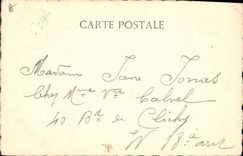 CARTE POSTALE
Madame Jane Jonas
Chez Mme Vve Calvel
40 Bd de Clichy
18ie arrt